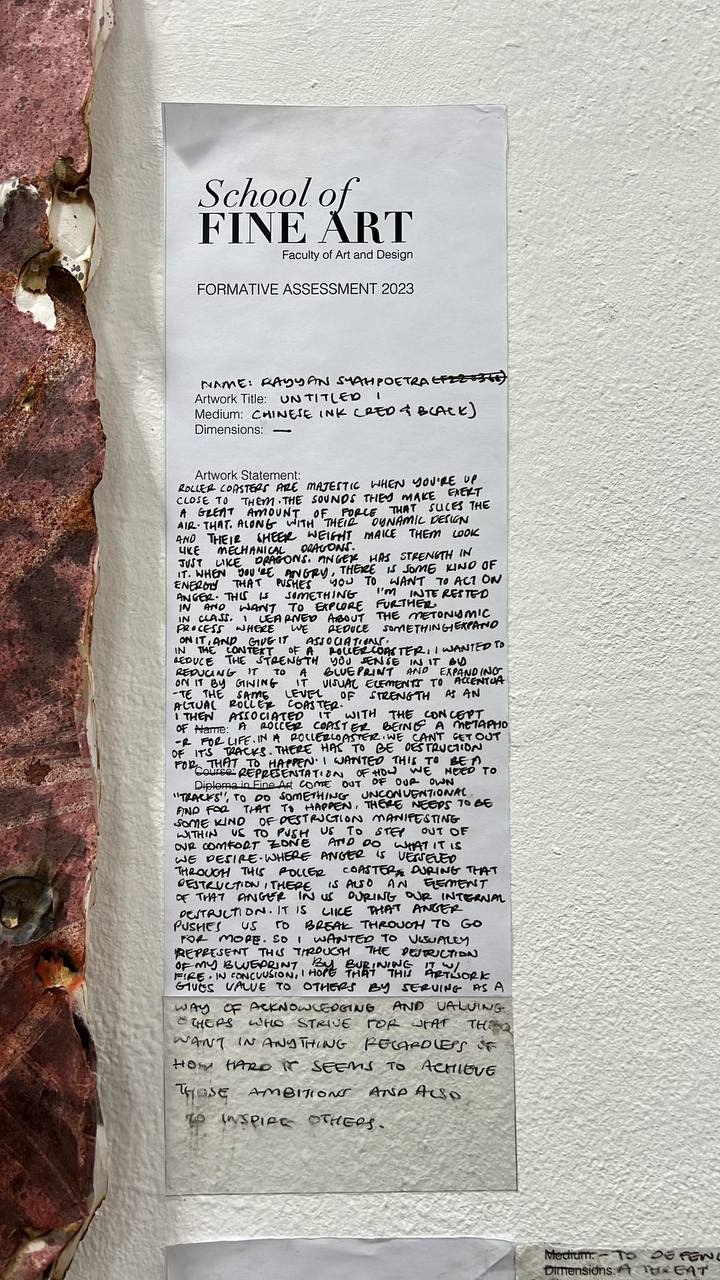 School of
FINE ART
Faculty of Art and Design
FORMATIVE ASSESSMENT 2023
NAME: RAYYAN SYAHPOETRA
Artwork Title: UNTITLED 1
Medium: CHINESE INK (RED & BLACK)
Dimensions: —
Artwork Statement:
ROLLER COASTERS ARE MAJESTIC WHEN YOU'RE UP
CLOSE TO THEM. THE SOUNDS THEY MAKE EXERT
A GREAT AMOUNT OF FORCE THAT SLICES THE
AIR. THAT. ALONG WITH THEIR DYNAMIC DESIGN
AND THEIR SHEER WEIGHT MAKE THEM LOOK
LIKE MECHANICAL DRAGONS.
JUST LIKE DRAGONS. ANGER HAS STRENGTH IN
IT. WHEN YOU'RE ANGRY, THERE IS SOME KIND OF
ENERGY THAT PUSHES YOU TO WANT TO ACT ON
ANGER. THIS IS SOMETHING I'M INTERESTED
IN AND WANT TO EXPLORE FURTHER.
IN CLASS. I LEARNED ABOUT THE METONYMIC
PROCESS WHERE WE REDUCE SOMETHING, EXPAND
ON IT, AND GIVE IT ASSOCIATIONS.
IN THE CONTEXT OF A ROLLERCOASTER, I WANTED TO
REDUCE THE STRENGTH YOU SENSE IN IT BY
REDUCING IT TO A BLUEPRINT AND EXPANDING
ON IT BY GIVING IT VISUAL ELEMENTS TO ACCENTUA
-TE THE SAME LEVEL OF STRENGTH AS AN
ACTUAL ROLLER COASTER.
I THEN ASSOCIATED IT WITH THE CONCEPT
OF Name: A ROLLER COASTER BEING A METAPHO
-R FOR LIFE. IN A ROLLERCOASTER. WE CAN'T GET OUT
OF ITS TRACKS. THERE HAS TO BE DESTRUCTION
FOR THAT TO HAPPEN. I WANTED THIS TO BE A
Course: REPRESENTATION OF HOW WE NEED TO
Diploma in Fine Art COME OUT OF OUR OWN
"TRACKS", TO DO SOMETHING UNCONVENTIONAL.
AND FOR THAT TO HAPPEN, THERE NEEDS TO BE
SOME KIND OF DESTRUCTION MANIFESTING
WITHIN US TO PUSH US TO STEP OUT OF
OUR COMFORT ZONE AND DO WHAT IT IS
WE DESIRE. WHERE ANGER IS VESSELED
THROUGH THIS ROLLER COASTER, DURING THAT
DESTRUCTION, THERE IS ALSO AN ELEMENT
OF THAT ANGER IN US DURING OUR INTERNAL
DESTRUCTION. IT IS LIKE THAT ANGER
PUSHES US TO BREAK THROUGH TO GO
FOR MORE. SO I WANTED TO VISUALLY
REPRESENT THIS THROUGH THE DESTRUCTION
OF MY BLUEPRINT BY BURNING IT W/
FIRE. IN CONCLUSION, I HOPE THAT THIS ARTWORK
GIVES VALUE TO OTHERS BY SERVING AS A
WAY OF ACKNOWLEDGING AND VALUING
OTHERS WHO STRIVE FOR WHAT THEY
WANT IN ANYTHING REGARDLESS OF
HOW HARD IT SEEMS TO ACHIEVE
THOSE AMBITIONS AND ALSO
TO INSPIRE OTHERS.
Medium: - TO DEFEN
Dimensions: A THREAT